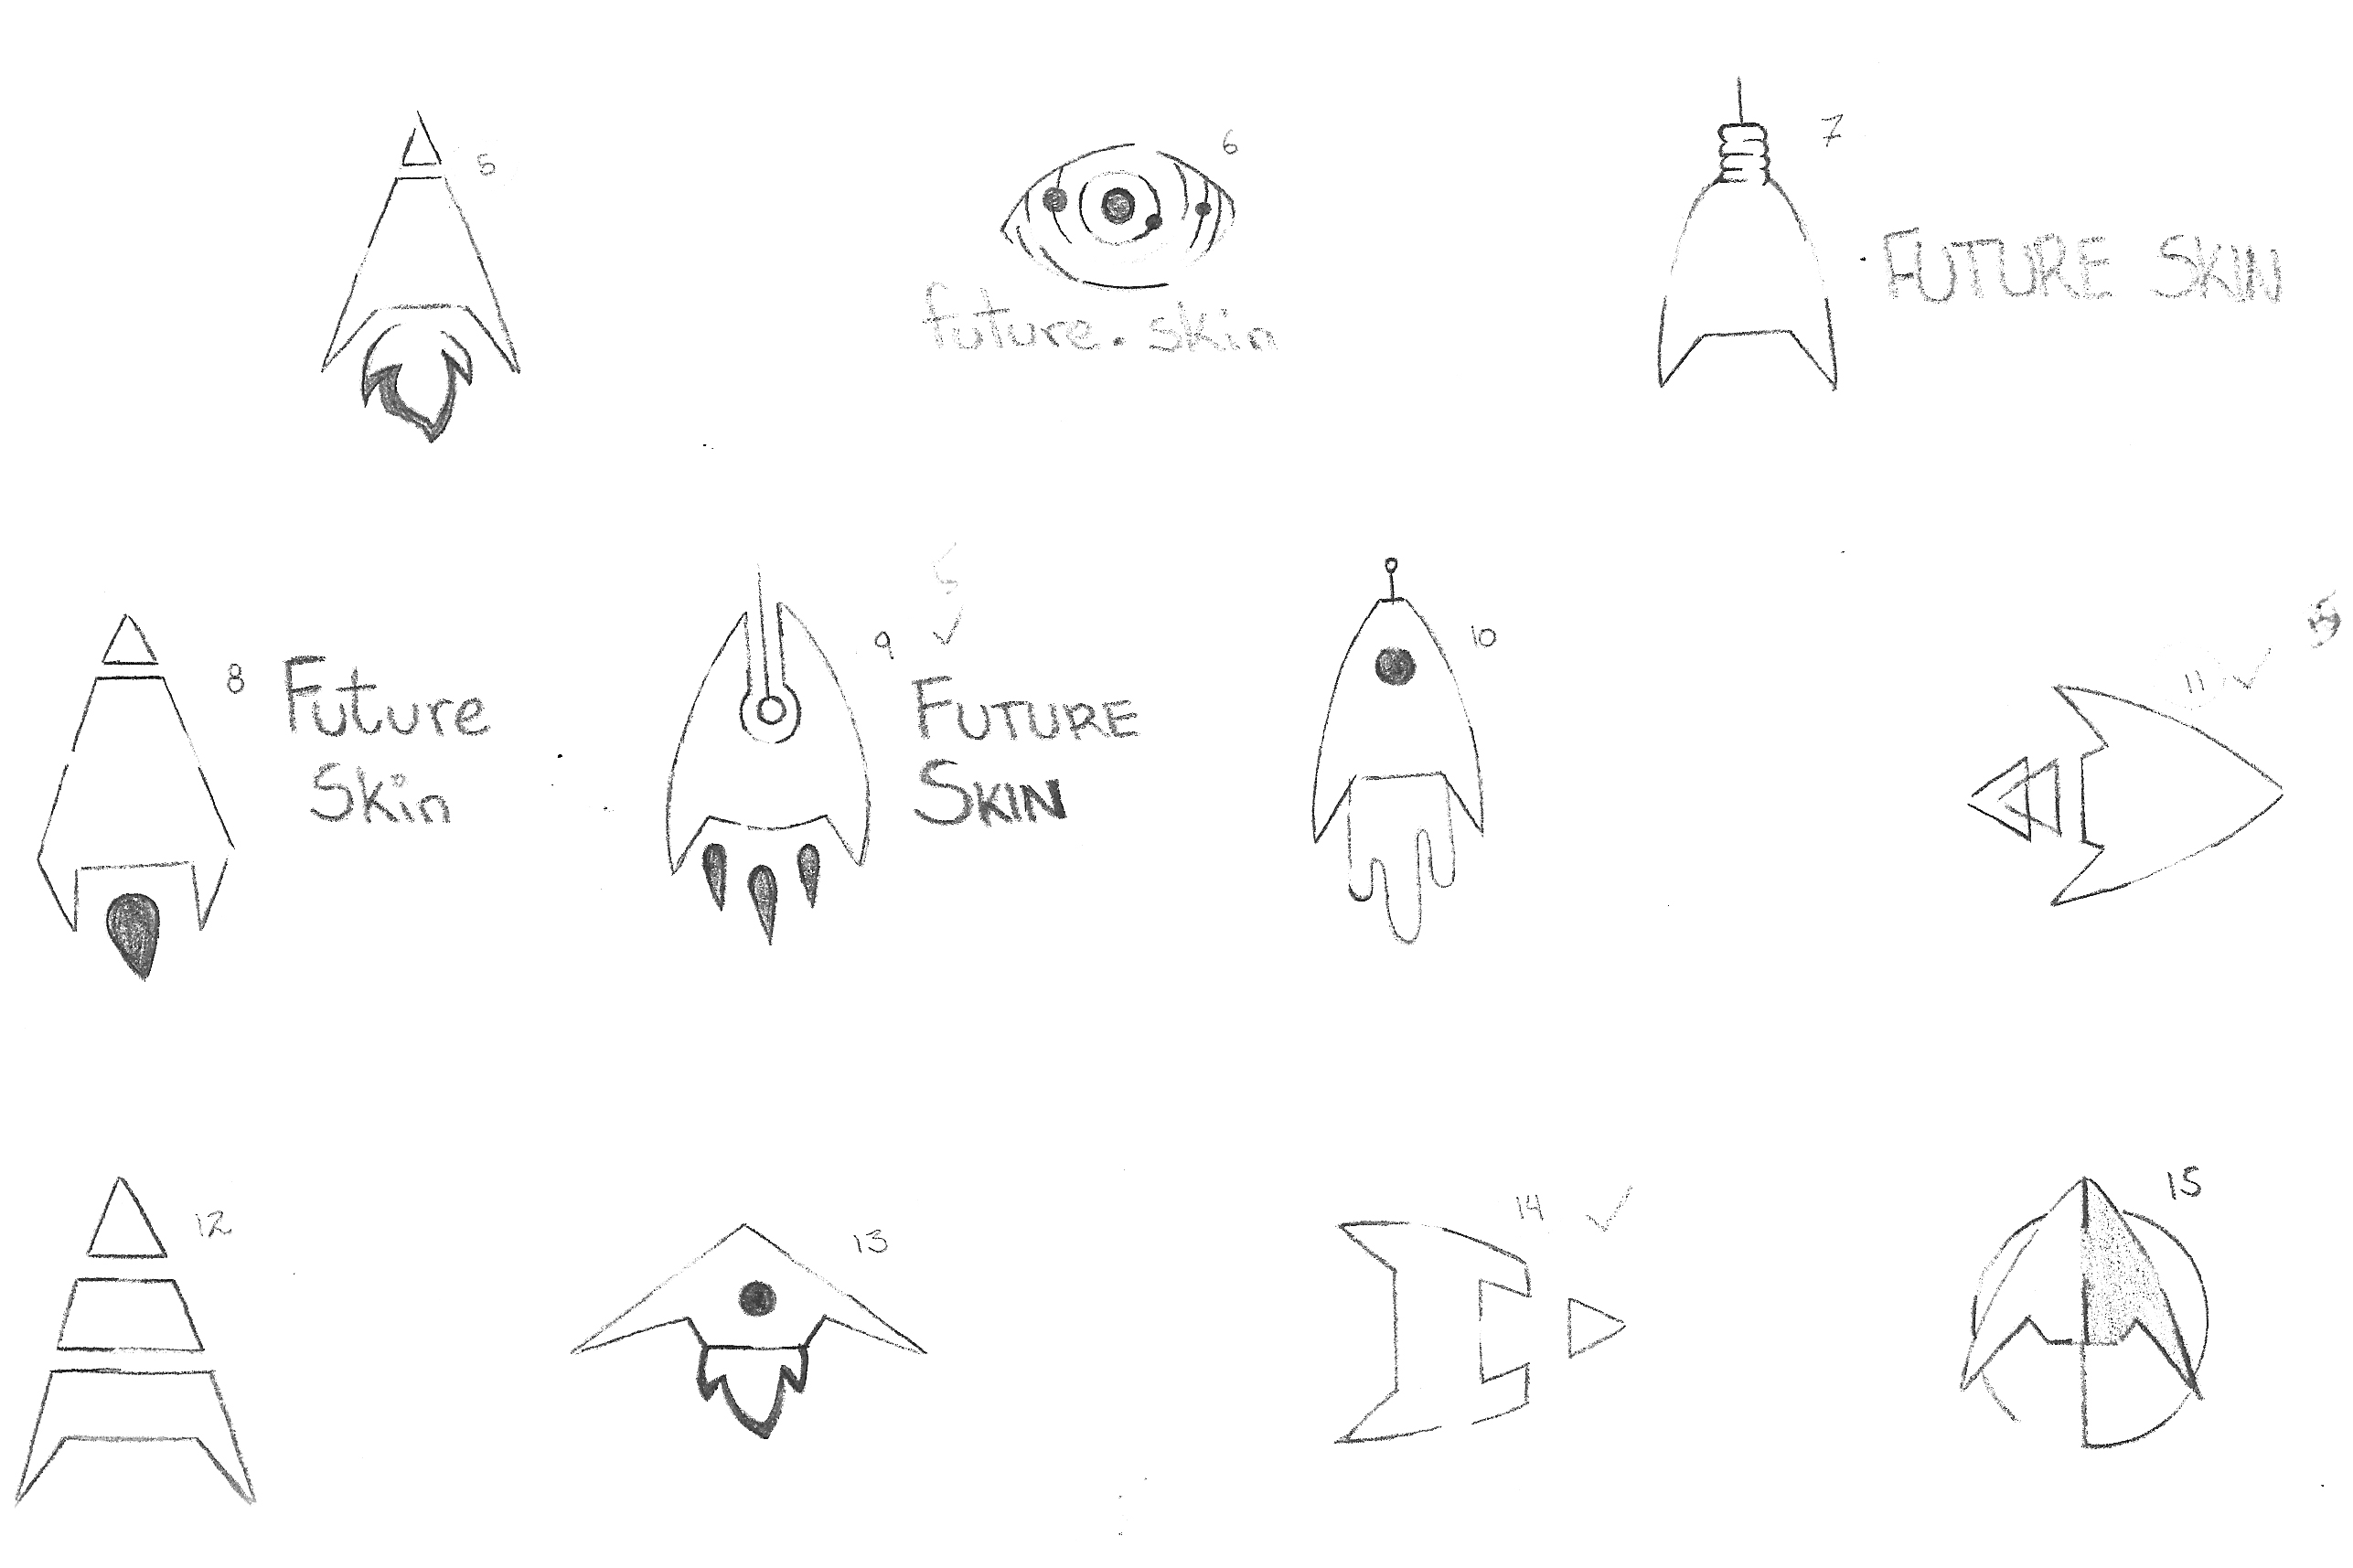 5
6
future.skin
7
FUTURE SKIN
8
Future
Skin
9
✓
FUTURE
SKIN
10
11 ✓
12
13
14 ✓
15